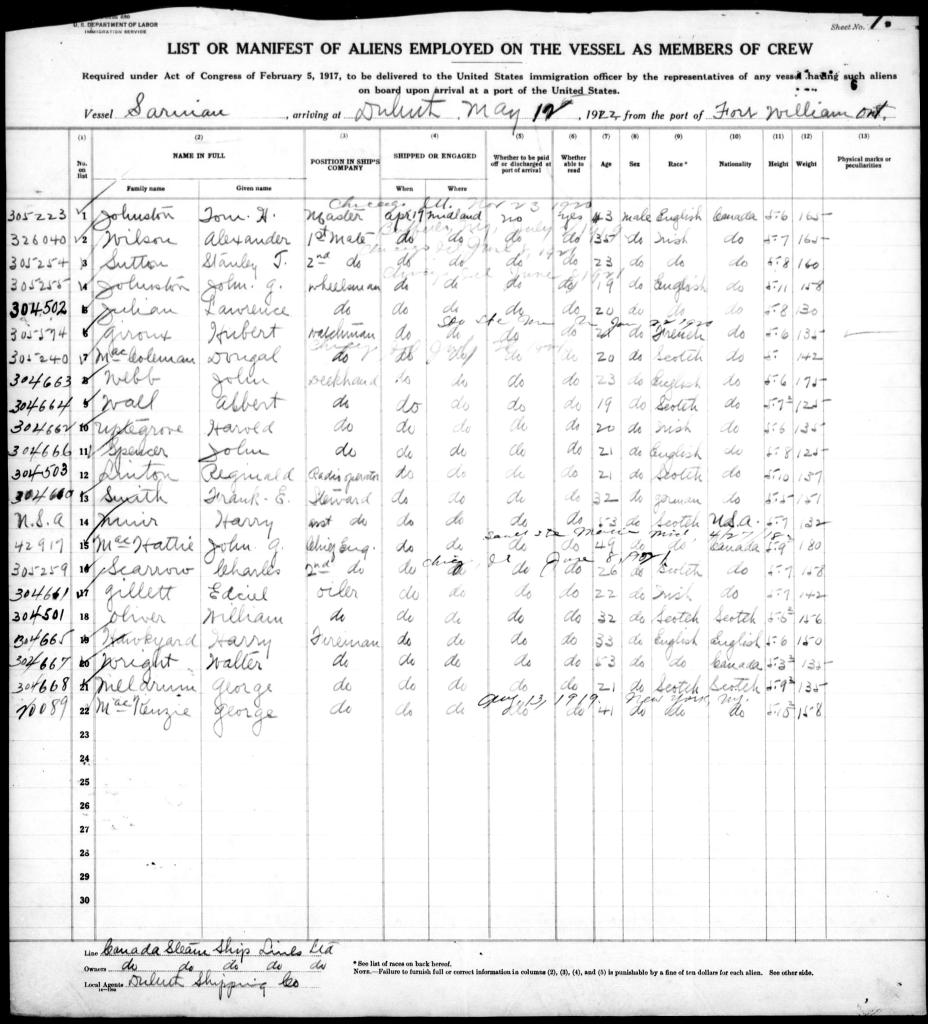 U. S. DEPARTMENT OF LABOR
IMMIGRATION SERVICE
Sheet No. 1.
LIST OR MANIFEST OF ALIENS EMPLOYED ON THE VESSEL AS MEMBERS OF CREW
Required under Act of Congress of February 5, 1917, to be delivered to the United States immigration officer by the representatives of any vessel having such aliens
on board upon arrival at a port of the United States.
6
Vessel Sarnian, arriving at Duluth May 12, 1922, from the port of Fort William Ont.
(1) (2) (3) (4) (5) (6) (7) (8) (9) (10) (11) (12) (13)
No. on list NAME IN FULL POSITION IN SHIP'S COMPANY SHIPPED OR ENGAGED Whether to be paid off or discharged at port of arrival Whether able to read Age Sex Race* Nationality Height Weight Physical marks or peculiarities
Family name Given name When Where
Chicago, Ill. Nov 23 1920
305223 1 Johnston Tom. H. Master Apr 19 Midland no yes 43 male English Canada 5-6 165
326040 2 Wilson Alexander 1st Mate do do do do 35 do Irish do 5-7 165
305254 3 Sutton Stanley T. 2nd do do do do do 23 do do do 5-8 160
305255 4 Johnston John. G. Wheelsman do do do do 19 do English do 5-11 158
304502 5 Julian Lawrence do do do do do 20 do do do 5-8 130
305594 6 Giroux Hubert Watchman do do do do do French do 5-6 135
305240 7 MacColeman Dougal do do do do do 20 do Scotch do 142
304663 8 Webb John Deckhand do do do do 23 do English do 5-6 175
304664 9 Wall Albert do do do do do 19 do Scotch do 5-7½ 125
304662 10 Uptegrove Harold do do do do do 20 do Irish do 5-6 135
304666 11 Spencer John do do do do do 21 do English do 5-8 125
304503 12 Linton Reginald Radio operator do do do do 21 do Scotch do 5-10 137
304660 13 Smith Frank. E. Steward do do do do 32 do German do 5-5 151
U.S.A 14 Muir Harry asst do do do do do 53 do Scotch U.S.A. 5-7 132
Sault Ste Marie Mich 4/27/18
42917 15 MacHattie John. G. Chief Eng. do do do do 49 do do Canada 5-9 180
Chicago Ill June 8, 1921
305259 16 Scarrow Charles 2nd do do do do do 26 do Scotch do 5-7 158
304661 17 Gillett Edciel Oiler do do do do 22 do Irish do 5-7 142
304501 18 Oliver William do do do do do 32 do Scotch Scotch 5-5½ 156
304665 19 Hawkyard Harry Fireman do do do do 33 do English English 5-6 150
304667 20 Wright Walter do do do do do 53 do do Canada 5-3½ 135
304668 21 Meldrum George do do do do do 21 do Scotch Scotch 5-9½ 135
Aug, 13, 1919. New York, N.Y.
70089 22 MacKenzie George do do do do do 41 do do do 158
23
24
25
26
27
28
29
30
Line Canada Steam Ship Lines Ltd
Owners do do do do do
Local Agents Duluth Shipping Co
* See list of races on back hereof.
NOTE.—Failure to furnish full or correct information in columns (2), (3), (4), and (5) is punishable by a fine of ten dollars for each alien. See other side.